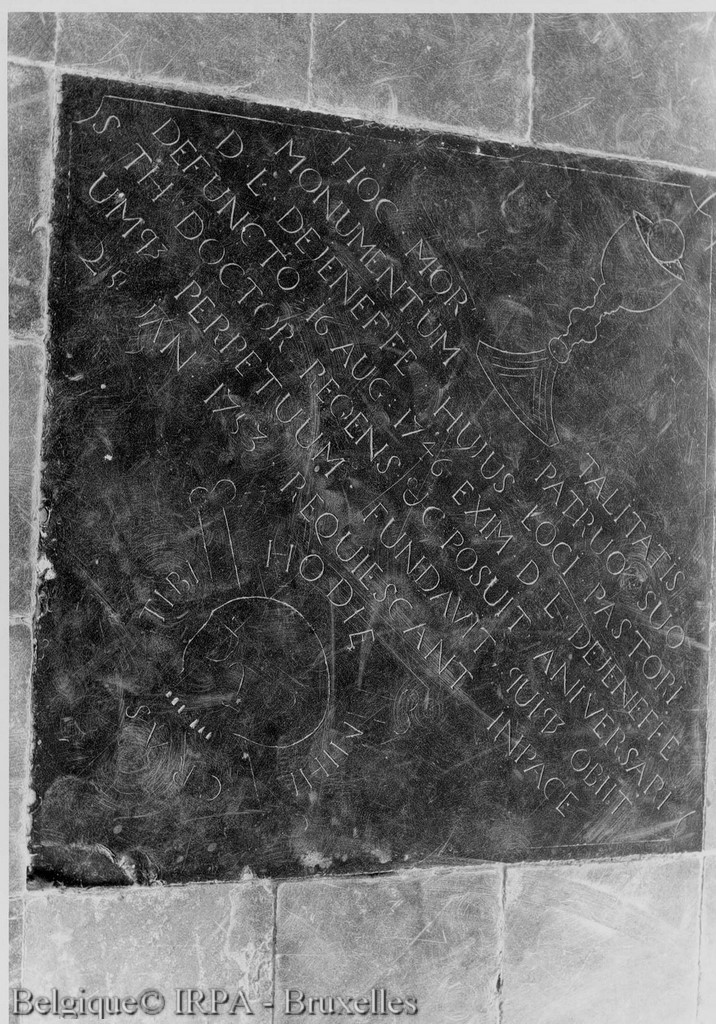 HOC MOR. TALITATIS
MONUMENTUM PATRUO SUO
D L. DEJENEFFE HUIUS LOCI PASTORI
DEFUNCTO 16 AUG: 1746 EXIM D L DEJENEFFE
JS TH DOCTOR REGENS POSUIT ANIVERSARI
UMQꝫ PERPETUUM FUNDAVIT. QUIQꝫ OBIIT
JAN 1753. REQUIESCANT INPACE
HODIE
TIBI
MIHI
CRAS
Belgique© IRPA - Bruxelles